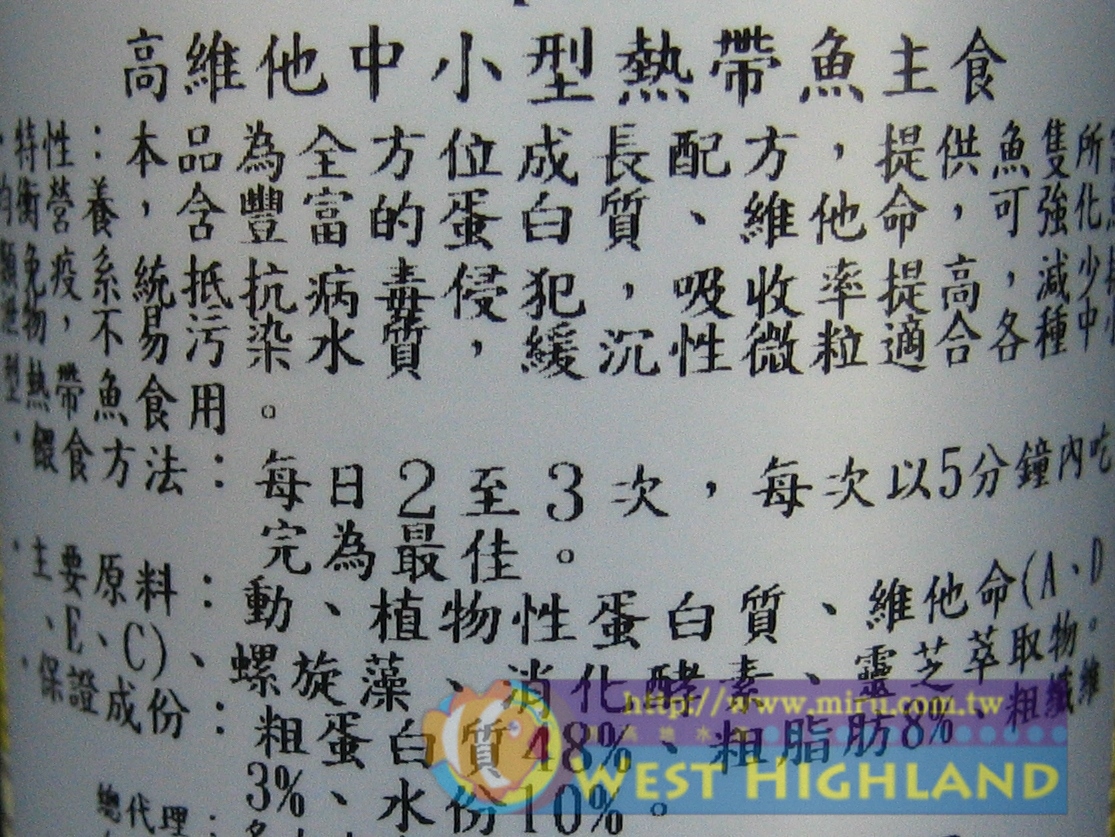 高維他中小型熱帶魚主食
·特性：本品為全方位成長配方，提供魚隻所
均衡營養，含豐富的蛋白質、維他命，可強化
類免疫系統抵抗病毒侵犯，吸收率提高，減少
泄物，不易污染水質，緩沉性微粒適合各種中
型熱帶魚食用。
·餵食方法：每日2至3次，每次以5分鐘內吃
完為最佳。
·主要原料：動、植物性蛋白質、維他命(A、D
、E、C)、螺旋藻、消化酵素、靈芝萃取物。
·保證成份：粗蛋白質48%、粗脂肪8%、粗纖維
3%、水份10%。
總代理：
http://www.miru.com.tw
高地水
WEST HIGHLAND